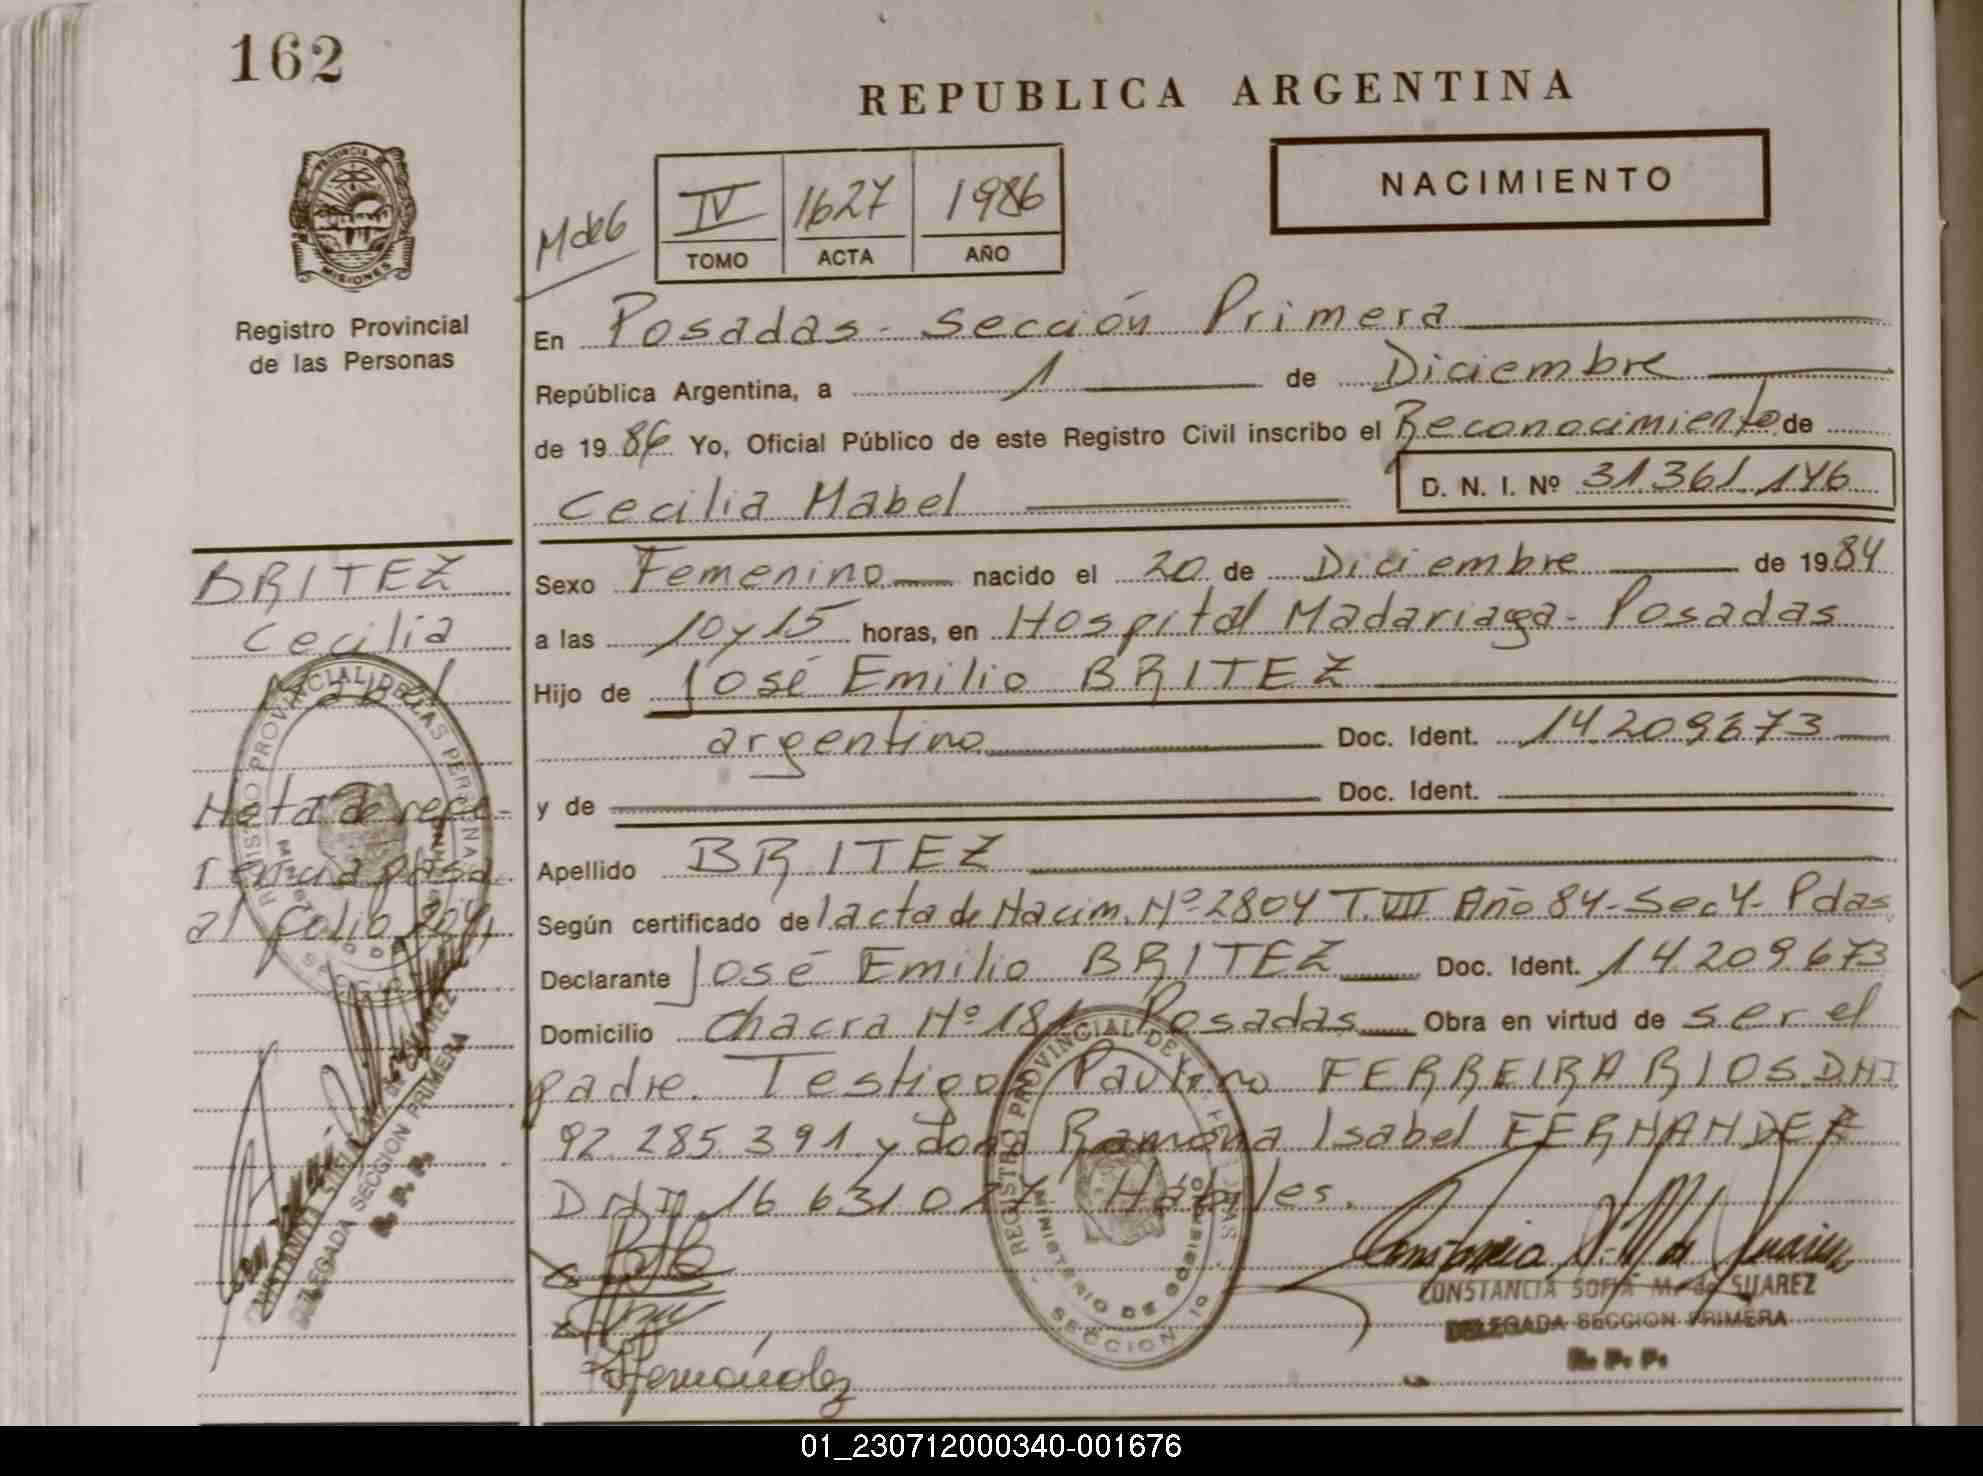 162
REPUBLICA ARGENTINA
NACIMIENTO
PROVINCIA DE
MISIONES
Registro Provincial
de las Personas
M de 6
IV 1627 1986
TOMO ACTA AÑO
En Posadas - Sección Primera
República Argentina, a 1 de Diciembre
de 1986 Yo, Oficial Público de este Registro Civil inscribo el Reconocimiento de
Cecilia Mabel D. N. I. Nº 31.361.146
BRITEZ
Cecilia
Mabel
Nota de refe-
rencia pasa
al folio
Sexo Femenino nacido el 20 de Diciembre de 1984
a las 10 y 15 horas, en Hospital Madariaga - Posadas
Hijo de José Emilio BRITEZ
argentino Doc. Ident. 14.209.673
y de Doc. Ident.
Apellido BRITEZ
Según certificado de l acta de Nacim. Nº 2804 T. VIII Año 84 - Sec 4 - Pdas
Declarante José Emilio BRITEZ Doc. Ident. 14.209.673
Domicilio Chacra Nº 181 Posadas Obra en virtud de ser el
padre. Testigo Paulino FERREIRA RIOS. DNI
92.285.391 y doña Ramona Isabel FERNANDEZ
DNI 16.631.017 Hábiles.
REGISTRO PROVINCIAL DE LAS PERSONAS
MINISTERIO DE GOBIERNO
SECCION 1º
Fernández
CONSTANCIA SOFIA M. de SUAREZ
DELEGADA SECCION PRIMERA
R. P. P.
REGISTRO PROVINCIAL DE LAS PERSONAS
DELEGADA SECCION PRIMERA
R. P. P.
01_230712000340-001676